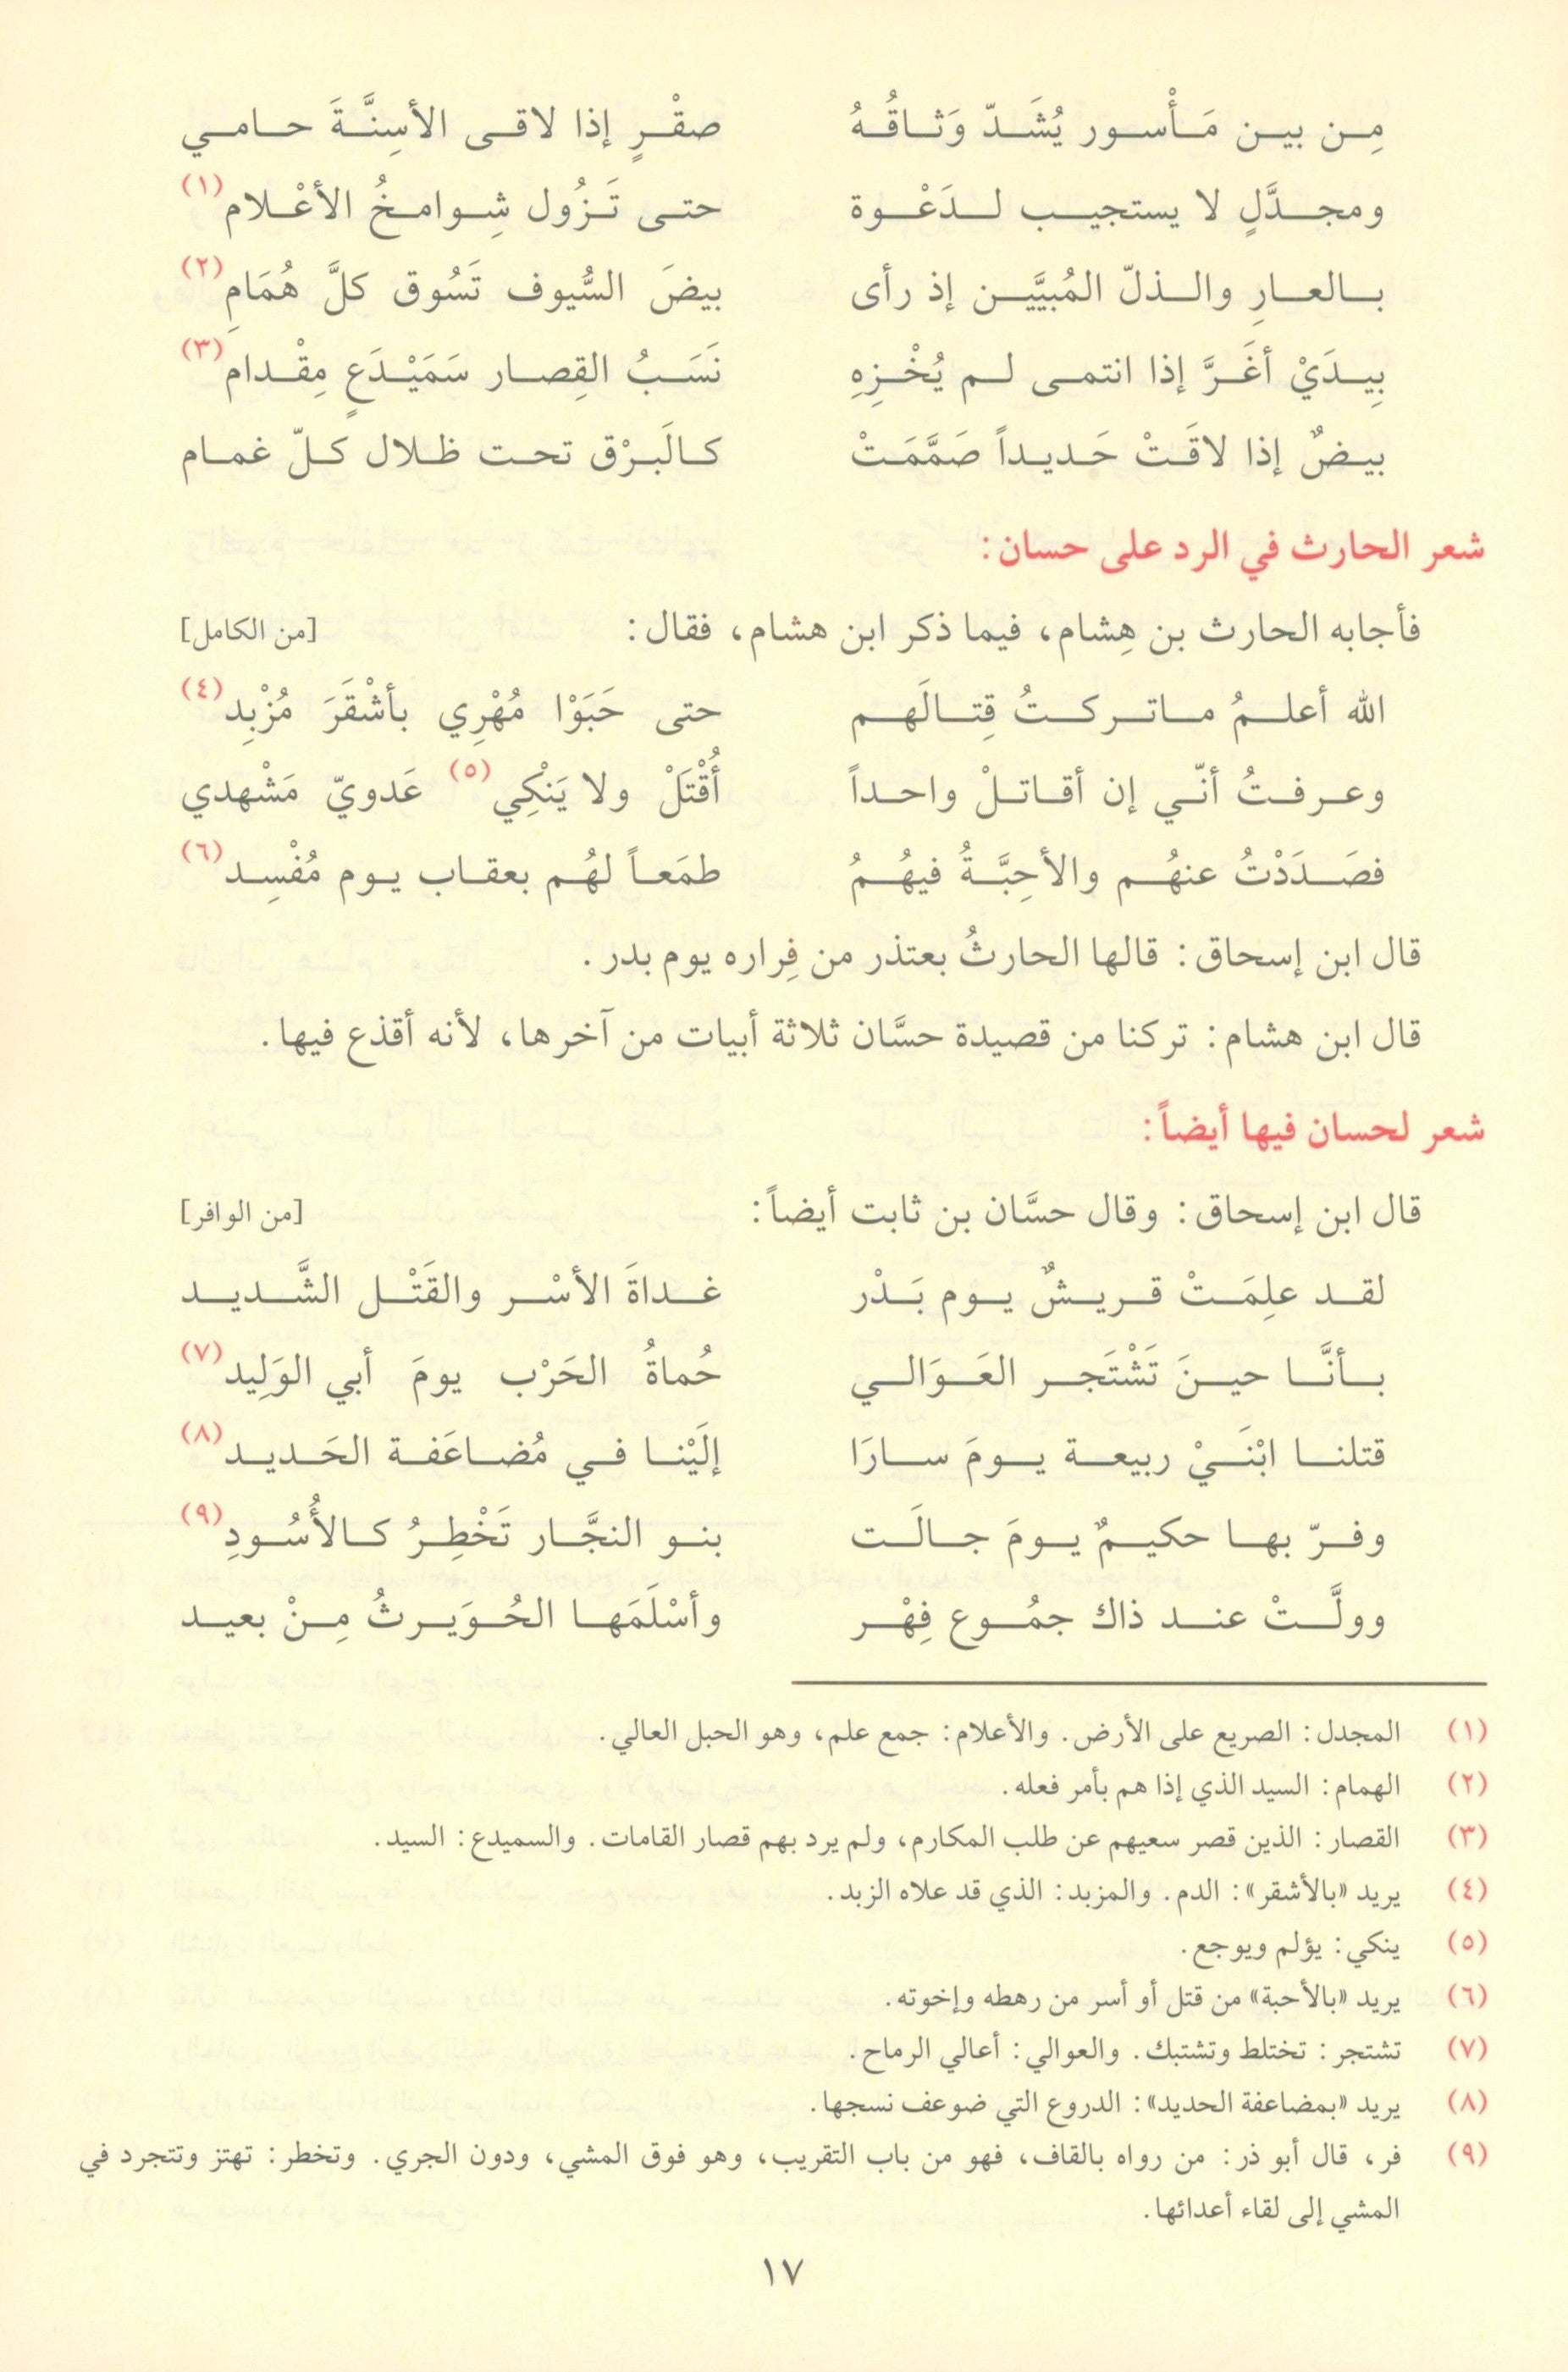 مِن بين مَأْسور يُشَدّ وَثاقُهُ صقْرٍ إذا لاقى الأسِنَّةَ حامي
ومجدَّلٍ لا يستجيب لدَعْوة حتى تَزُول شِوامخُ الأعْلام (١)
بالعارِ والذلّ المُبيَّين إذ رأى بيضَ السُّيوف تَسُوق كلَّ هُمَامِ (٢)
بِيدَيْ أغَرَّ إذا انتمى لم يُخْزِهِ نَسَبُ القِصار سَمَيْدَعٍ مِقْدام (٣)
بيضٌ إذا لاقَتْ حَديداً صَمَّمَتْ كالَبرْق تحت ظلال كلّ غمام
شعر الحارث في الرد على حسان:
فأجابه الحارث بن هِشام، فيما ذكر ابن هشام، فقال: [من الكامل]
الله أعلمُ ماتركتُ قِتالَهم حتى حَبَوْا مُهْرِي بأشْقَرَ مُزْبِد (٤)
وعرفتُ أنّي إن أقاتلْ واحداً أُقْتَلْ ولا يَنْكِي (٥) عَدويّ مَشْهدي
فصَدَدْتُ عنهُم والأحِبَّةُ فيهُمُ طمَعاً لهُم بعقاب يوم مُفْسِد (٦)
قال ابن إسحاق: قالها الحارثُ بعتذر من فِراره يوم بدر.
قال ابن هشام: تركنا من قصيدة حسَّان ثلاثة أبيات من آخرها، لأنه أقذع فيها.
شعر لحسان فيها أيضاً:
قال ابن إسحاق: وقال حسَّان بن ثابت أيضاً: [من الوافر]
لقد علِمَتْ قريشٌ يوم بَدْر غداةَ الأسْر والقَتْل الشَّديد
بأنَّا حينَ تَشْتَجر العَوَالي حُماةُ الحَرْب يومَ أبي الوَلِيد (٧)
قتلنا ابْنَيْ ربيعة يومَ سارَا إلَيْنا في مُضاعَفة الحَديد (٨)
وفرّ بها حكيمٌ يومَ جالَت بنو النجَّار تَخْطِرُ كالأُسُودِ (٩)
وولَّتْ عند ذاك جمُوع فِهْر وأسْلَمَها الحُوَيرثُ مِنْ بعيد
(١) المجدل: الصريع على الأرض. والأعلام: جمع علم، وهو الحبل العالي.
(٢) الهمام: السيد الذي إذا هم بأمر فعله.
(٣) القصار: الذين قصر سعيهم عن طلب المكارم، ولم يرد بهم قصار القامات. والسميدع: السيد.
(٤) يريد «بالأشقر»: الدم. والمزبد: الذي قد علاه الزبد.
(٥) ينكي: يؤلم ويوجع.
(٦) يريد «بالأحبة» من قتل أو أسر من رهطه وإخوته.
(٧) تشتجر: تختلط وتشتبك. والعوالي: أعالي الرماح.
(٨) يريد «بمضاعفة الحديد»: الدروع التي ضوعف نسجها.
(٩) فر، قال أبو ذر: من رواه بالقاف، فهو من باب التقريب، وهو فوق المشي، ودون الجري. وتخطر: تهتز وتتجرد في
المشي إلى لقاء أعدائها.
١٧